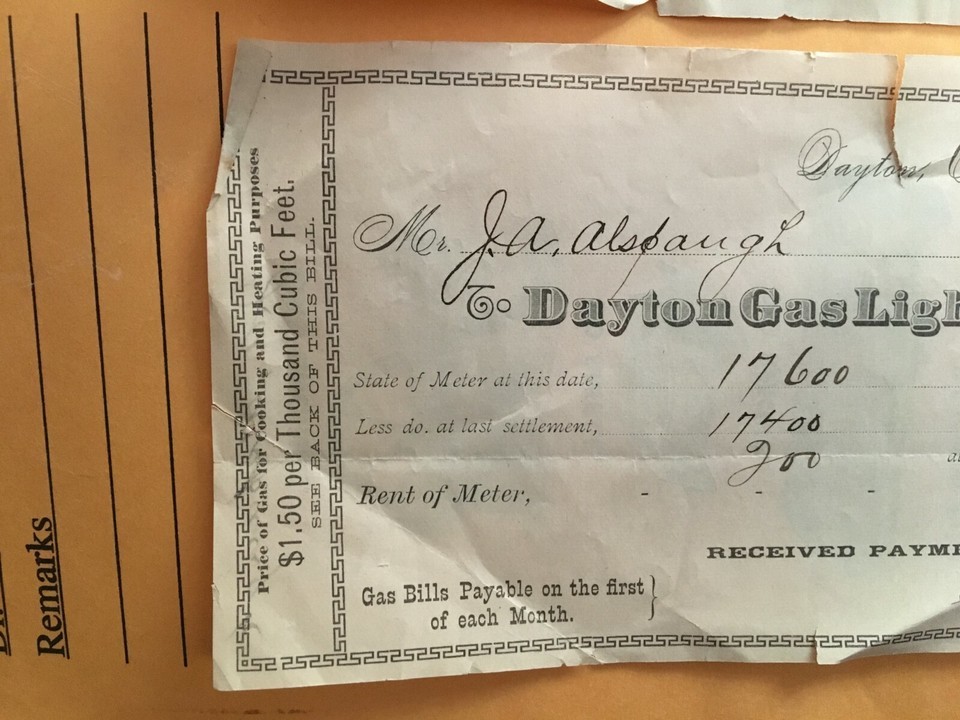 Remarks
Price of Gas for Cooking and Heating Purposes
$1.50 per Thousand Cubic Feet.
SEE BACK OF THIS BILL.
Dayton,
Mr. J. A. Alspaugh
To Dayton Gas Ligh
State of Meter at this date, 17600
Less do. at last settlement, 17400
200
Rent of Meter, - - -
RECEIVED PAYME
Gas Bills Payable on the first
of each Month.